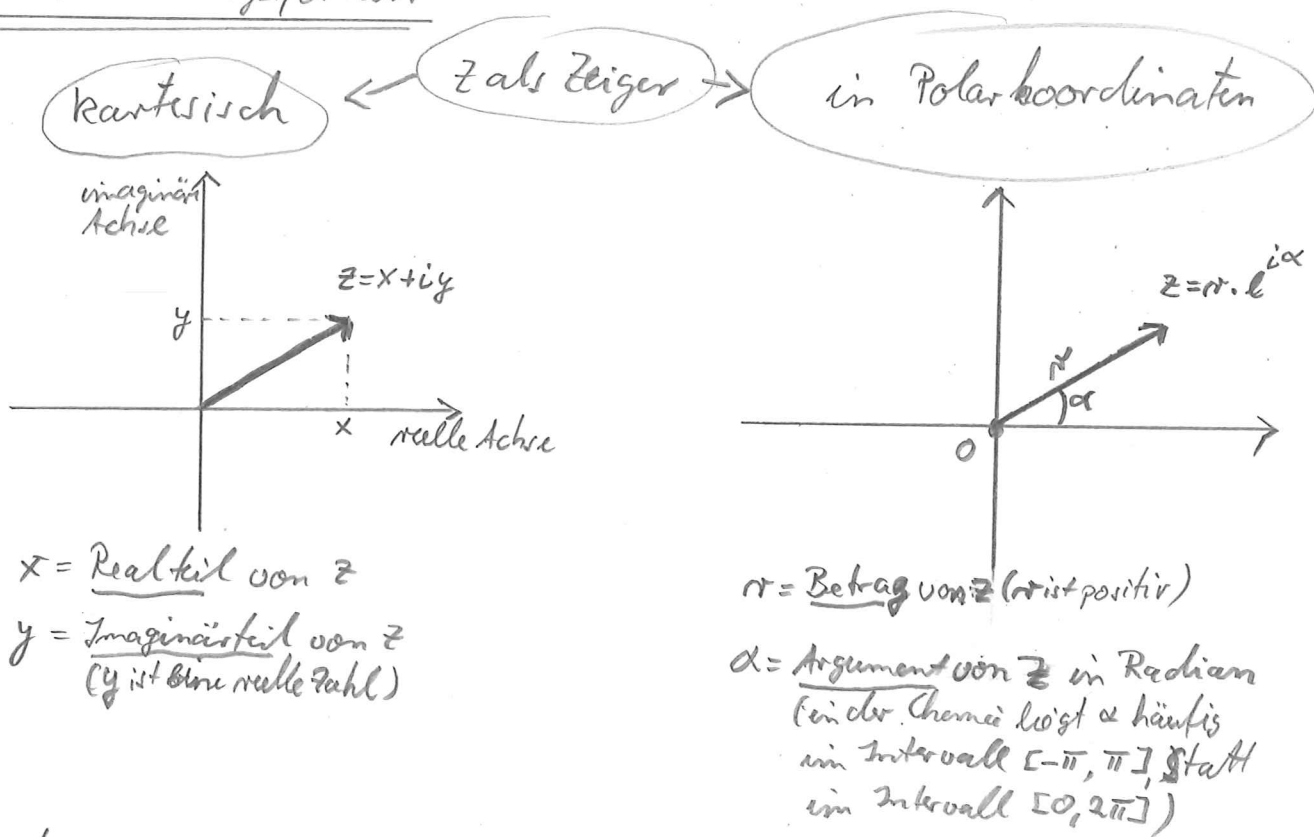 kartesisch
z als Zeiger
in Polarkoordinaten
imaginäre
Achse
z=x+iy
y
x
reelle Achse
x = Realteil von z
y = Imaginärteil von z
(y ist eine reelle Zahl)
z=r·e^{iα}
r
α
0
r = Betrag von z (r ist positiv)
α = Argument von z in Radian
(in der Chemie liegt α häufig
im Intervall [-π, π], statt
im Intervall [0, 2π])